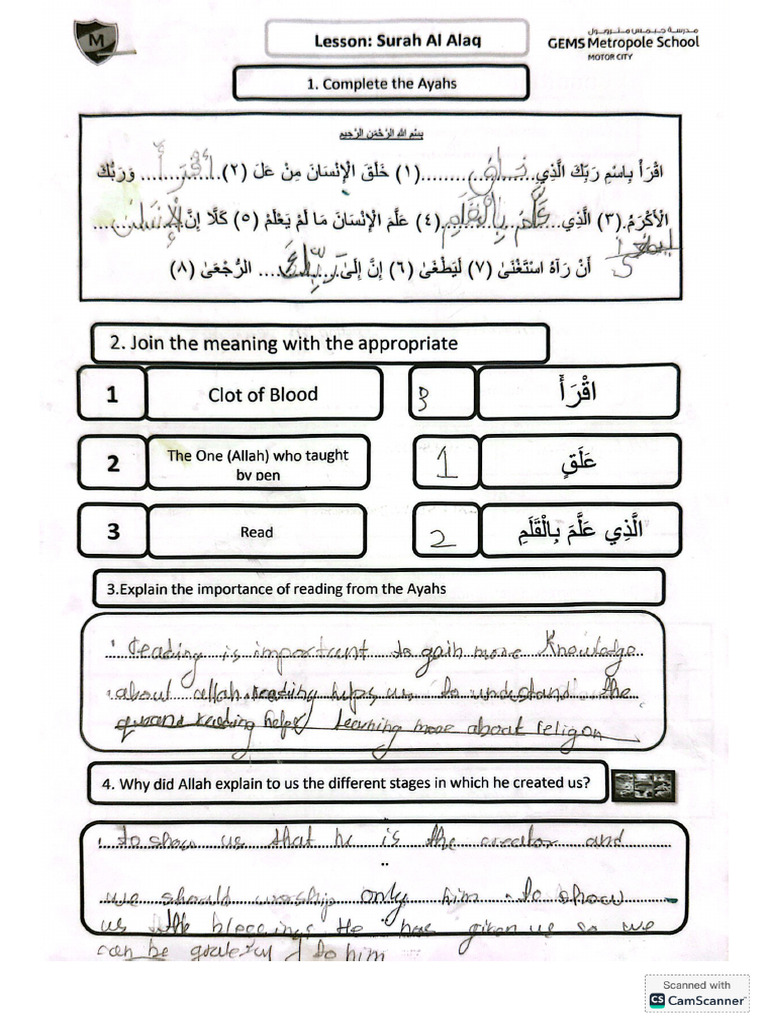 M
Lesson: Surah Al Alaq
مدرسة جيمس متروبول
GEMS Metropole School
MOTOR CITY
1. Complete the Ayahs
بِسْمِ اللهِ الرَّحْمَنِ الرَّحِيمِ
اقْرَأْ بِاسْمِ رَبِّكَ الَّذِي...خلق...(١) خَلَقَ الْإِنْسَانَ مِنْ عَلَ (٢)...اقْرَأْ... وَرَبُّكَ
الْأَكْرَمُ.(٣) الَّذِي...عَلَّمَ بِالْقَلَمِ...(٤) عَلَّمَ الْإِنْسَانَ مَا لَمْ يَعْلَمْ (٥) كَلَّا إِنَّ...الْإِنْسَانَ...
أَنْ رَآهُ اسْتَغْنَىٰ (٧) لَيَطْغَىٰ (٦) إِنَّ إِلَىٰ...رَبِّكَ... الرُّجْعَىٰ (٨)
2. Join the meaning with the appropriate
1 Clot of Blood 3 اقْرَأْ
2 The One (Allah) who taught by pen 1 عَلَقٍ
3 Read 2 الَّذِي عَلَّمَ بِالْقَلَمِ
3.Explain the importance of reading from the Ayahs
reading is important to gain more Knowledge
about allah. reading helps us to understand the
learning more about religon
4. Why did Allah explain to us the different stages in which he created us?
to show us that he is the creator and
we should worship only him. to show
us the bleccings He has given us so we
can be grateful to him
Scanned with
CS CamScanner